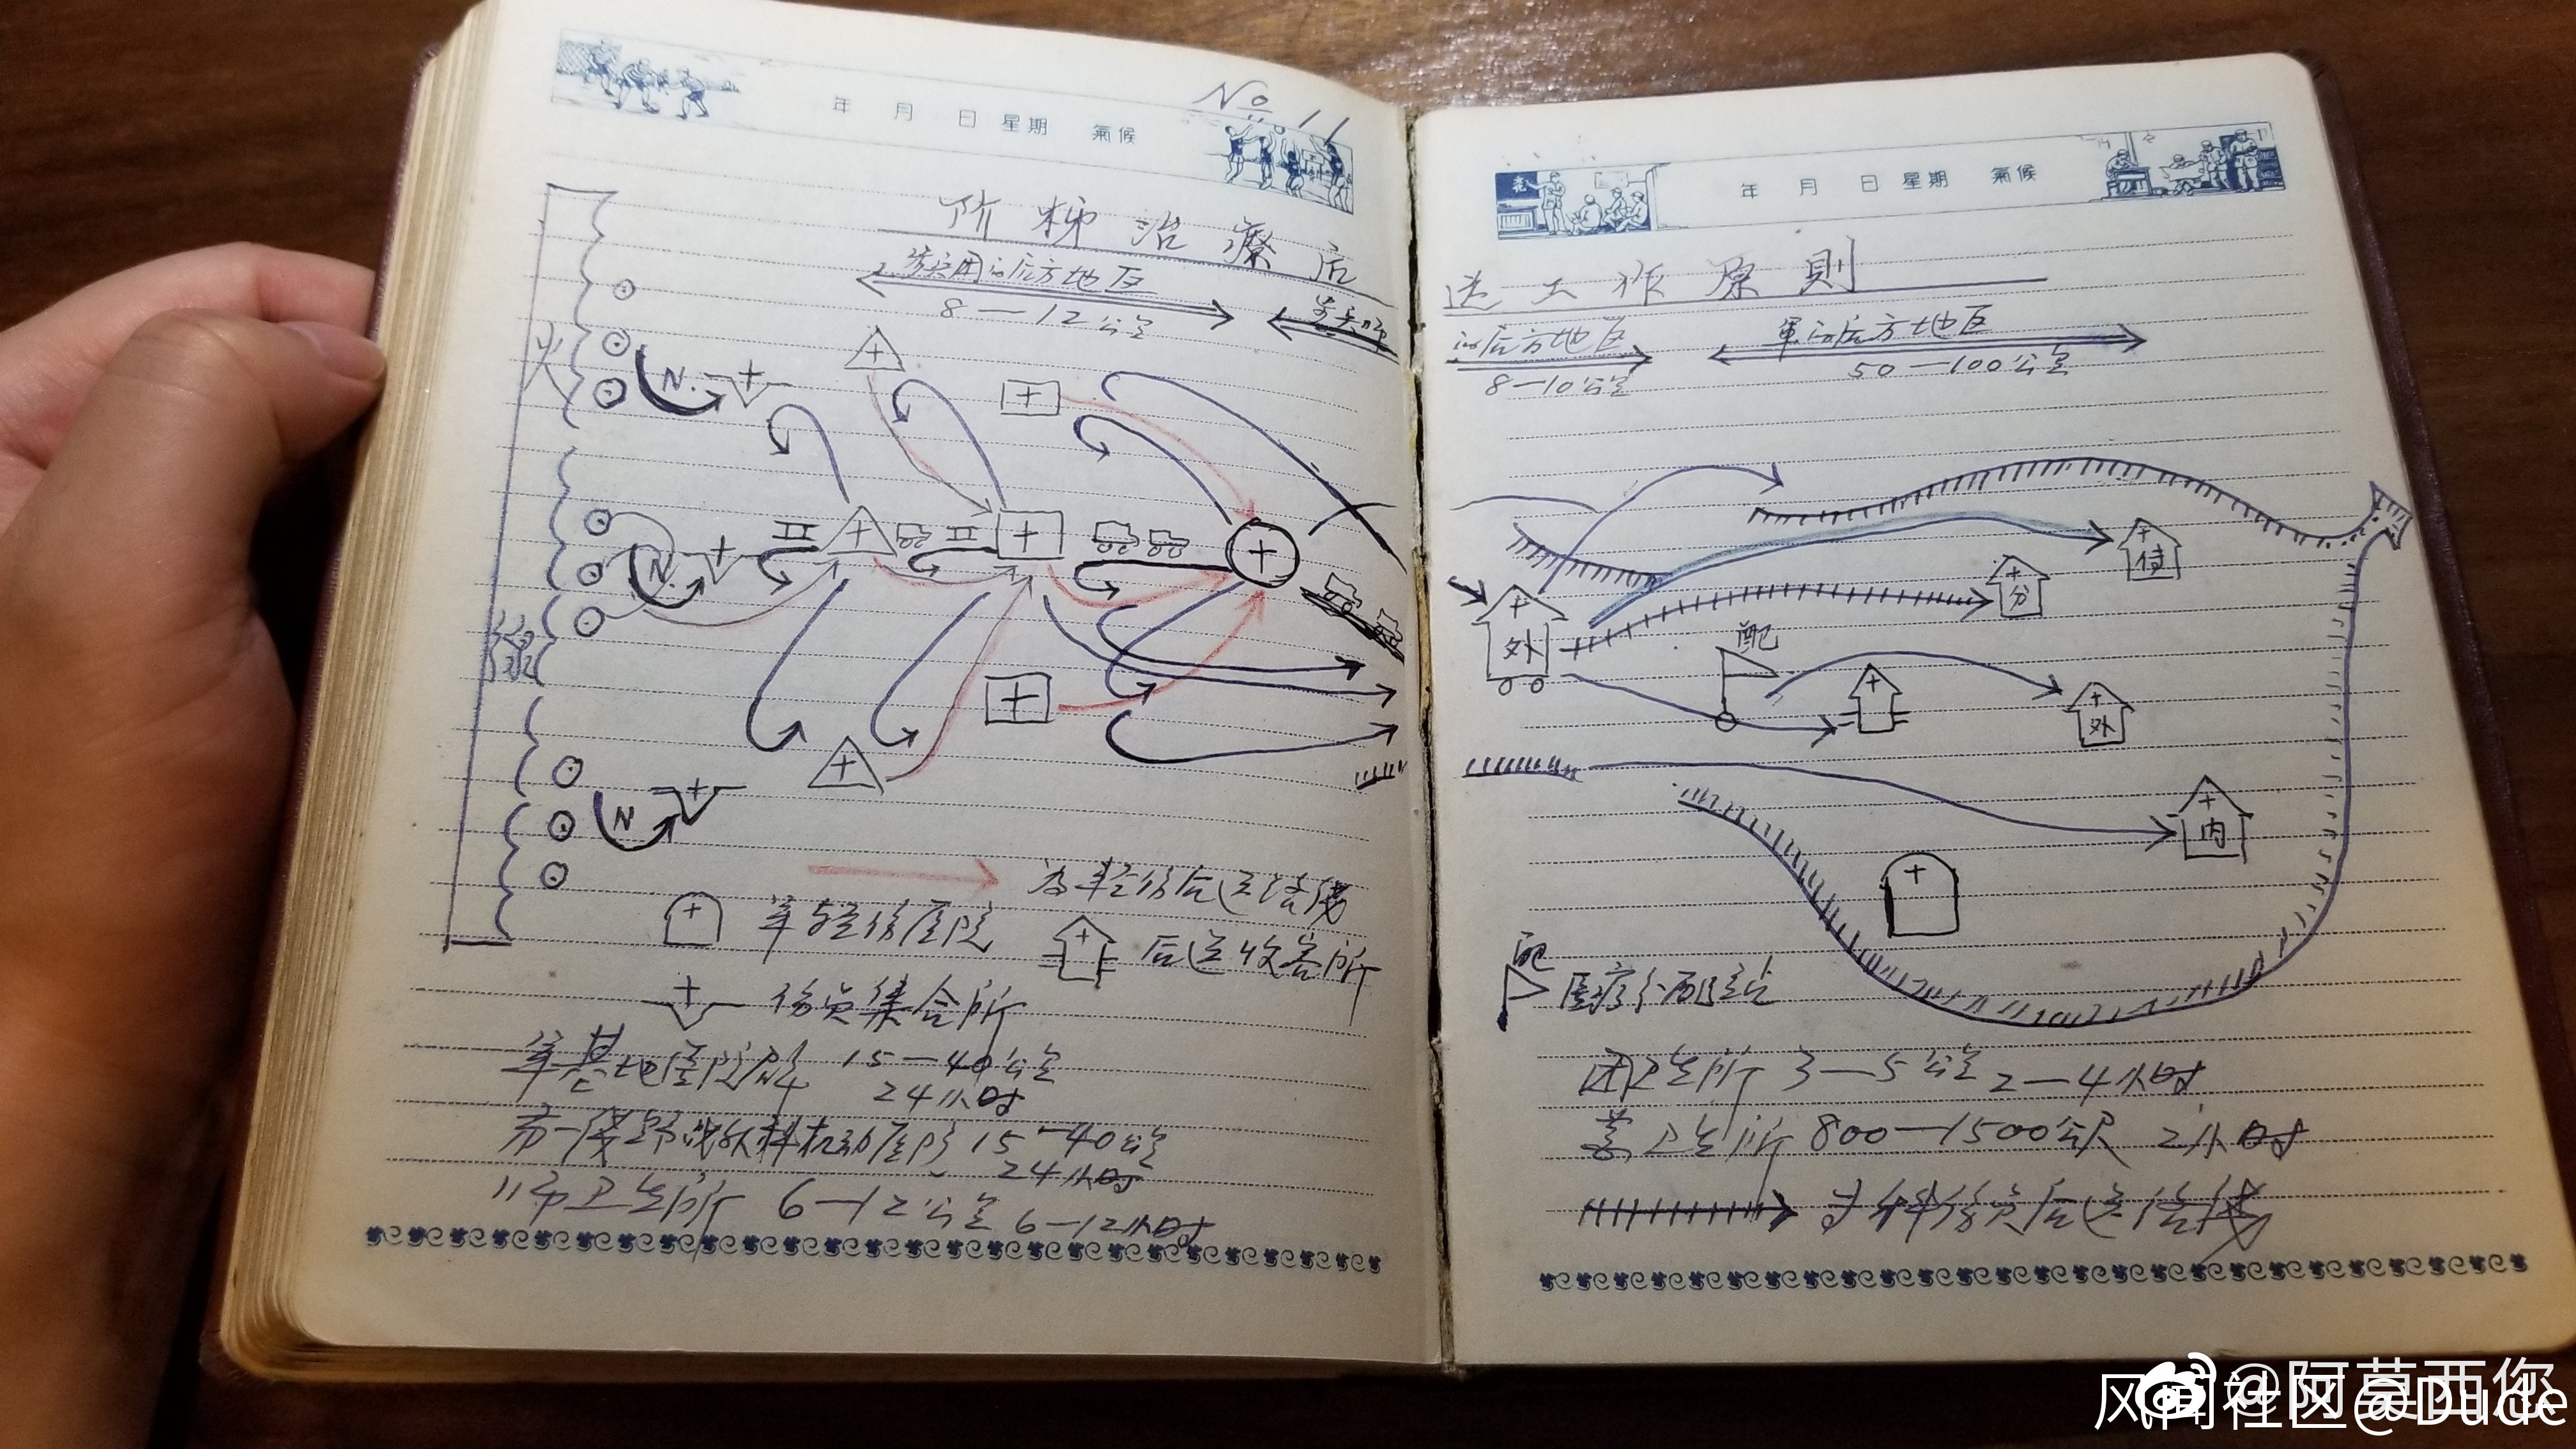 No 11
年 月 日 星期 氣候
阶梯治療后
后方地区
8—12公里
火
線
N.
N.
N
为轻伤后送路线
軍轻伤医院
后送收容所
伤员集合所
軍基地医院 15—40公里
24小时
第一线野战外科机动医院 15—40公里
24小时
〃师卫生所 6—12公里 6—12小时
年 月 日 星期 氣候
送工作原則
的后方地区
8—10公里
軍的后方地区
50—100公里
待
分
外
配
外
内
配
医疗分配站
团卫生所 3—5公里 2—4小时
营卫生所 800—1500公尺 2小时
科伤员后送路线
风闻社区@Dude
@阿莫西您